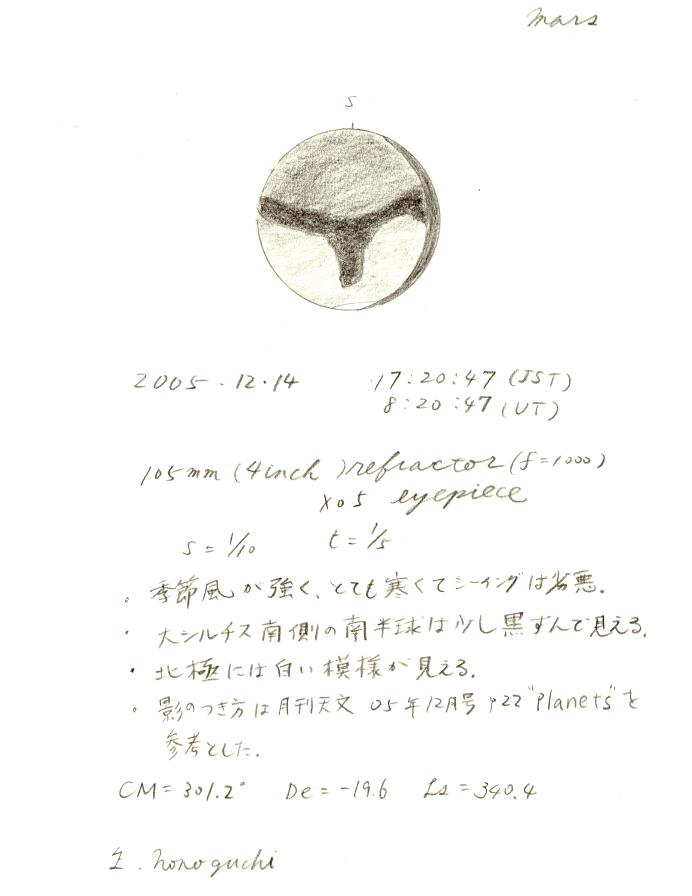 Mars
S
2005.12.14 17:20:47 (JST)
8:20:47 (UT)
105mm (4inch) refractor (f=1000)
X05 eyepiece
S=1/10 t=1/5
・季節風が強く、とても寒くてシーイングは劣悪.
・大シルチス南側の南半球は少し黒ずんで見える.
・北極には白い模様が見える.
・影のつき方は月刊天文 05年12月号 P22 "Planets"を
参考とした.
CM=301.2° De=-19.6 Ls=340.4
nonoguchi